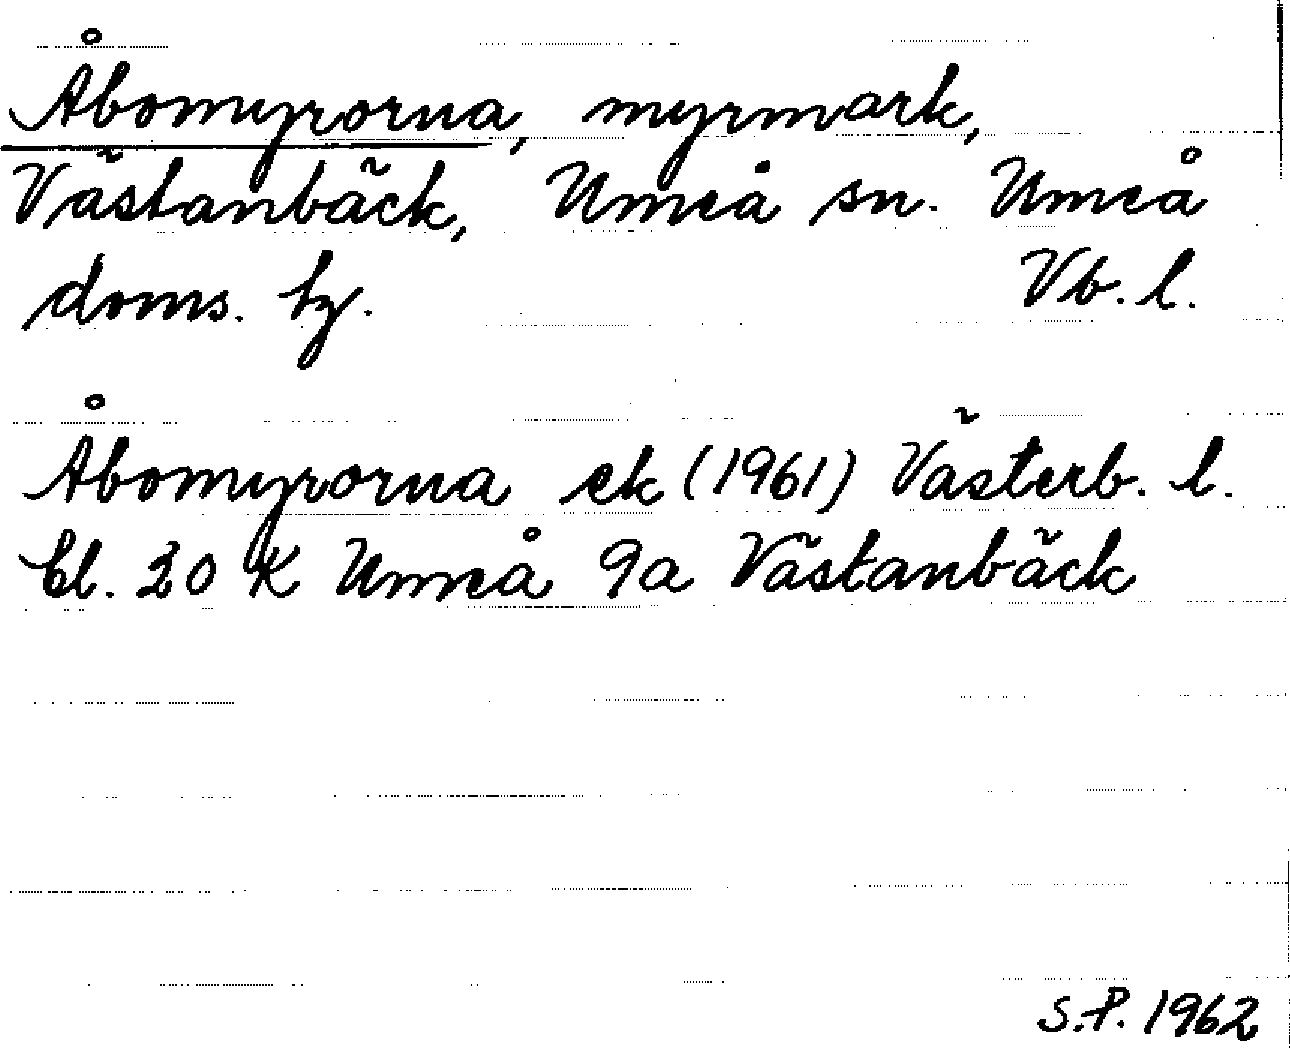 Åbomyrorna, myrmark,
Västanbäck, Umeå sn. Umeå
doms. hg. Vb. l.
Åbomyrorna ek (1961) Västerb. l.
bl. 20 K Umeå 9a Västanbäck
S.P. 1962